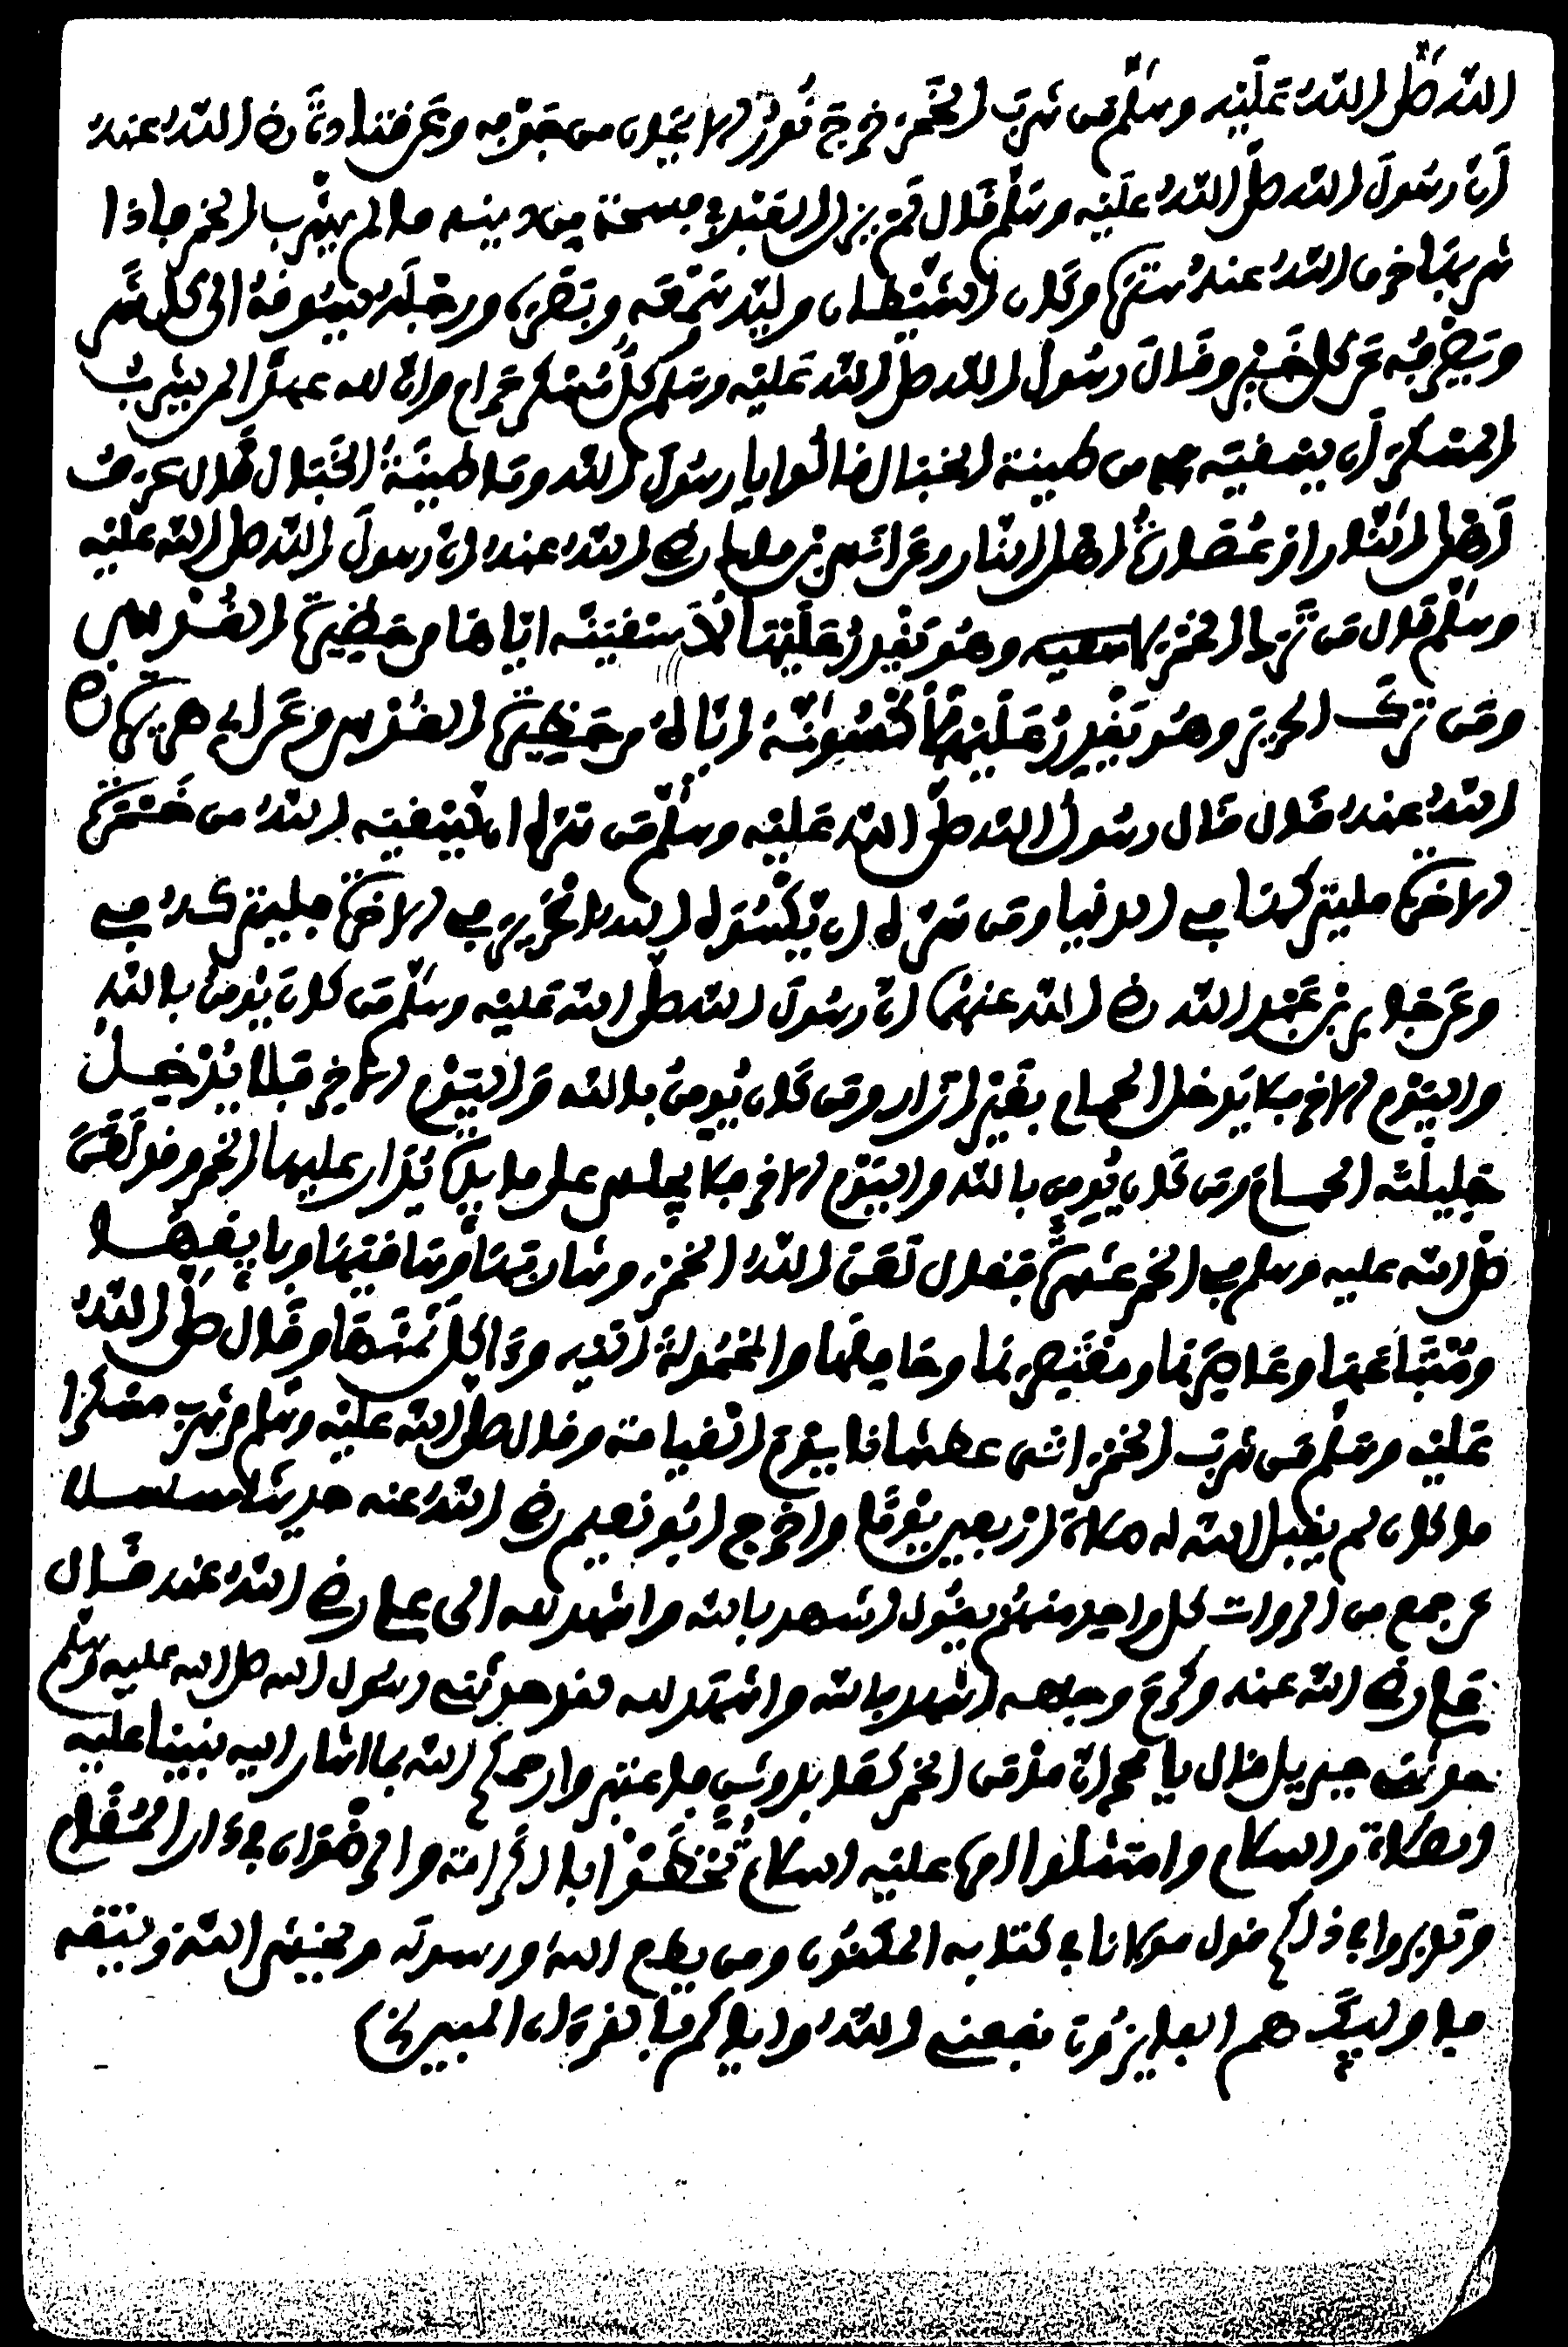 الله صلى الله عليه وسلم من شرب الخمر خرج نور الايمان من جوفه وعن قتادة رضي الله عنه
أن رسول الله صلى الله عليه وسلم قال لم يزل العبد في فسحة من دينه ما لم يشرب الخمر فإذا
شربها خرق الله عنه ستره وكان الشيطان وليه وسمعه وبصره ورجله يسوقه الى كل شر
ويصرفه عن كل خير وقال رسول الله صلى الله عليه وسلم كل مسكر حرام وان لله عهدا لمن يشرب
المسكر أن يسقيه من طينة الخبال قالوا يا رسول الله وما طينة الخبال قال عرق
أهل النار او عصارة اهل النار وعن انس بن مالك رضي الله عنه ان رسول الله صلى الله عليه
وسلم قال من ترك الخمر وهو يقدر عليها لأسقينه اياها من حظيرة القدس
ومن ترك الحرير وهو يقدر عليه لأكسونه اياه من حظيرة القدس وعن ابي هريرة رضي
الله عنه قال قال رسول الله صلى الله عليه وسلم من سره ان يسقيه الله من خمرة
الاخرة فليتركها في الدنيا ومن سره ان يكسوه الله الحرير في الاخرة فليتركه في
وعن جابر بن عبد الله رضي الله عنهما ان رسول الله صلى الله عليه وسلم من كان يؤمن بالله
واليوم الاخر فلا يدخل الحمام بغير إزار ومن كان يؤمن بالله واليوم الاخر فلا يدخل
حليلته الحمام ومن كان يؤمن بالله واليوم الاخر فلا يجلس على مايدة يدار عليها الخمر وقد لعن
صلى الله عليه وسلم في الخمر عشرة فقال لعن الله الخمر وشاربها وساقيها وبايعها
ومبتاعها وعاصرها ومعتصرها وحاملها والمحمولة اليه وءاكل ثمنها وقال صلى الله
عليه وسلم من شرب الخمر اتى عطشانا يوم القيامة وقال صلى الله عليه وسلم من شرب مسكرا
ما كان لم يقبل الله له صلاة اربعين يوما واخرج ابو نعيم رضي الله عنه حديثا مسلسلا
عن جمع من الروات كل واحد منهم يقول اشهد بالله واشهد لله الى علي رضي الله عنه قال
علي رضي الله عنه وكرم وجهه اشهد بالله واشهد لله لقد حدثني رسول الله صلى الله عليه وسلم
حدثني جبريل فقال يا محمد ان مدمن الخمر كعابد وثن فاعتبروا رحمكم الله بما اشار اليه نبينا عليه
الصلاة والسلام وامتثلوا امره عليه السلام تحظوا بالكرامة والرضوان في دار المقام
وتدبروا في ذلكم قول مولانا في كتابه المكنون ومن يطع الله ورسوله ويخش الله ويتقه
فاوليك هم الفايزون نفعني الله واياكم بالقرءان المبين